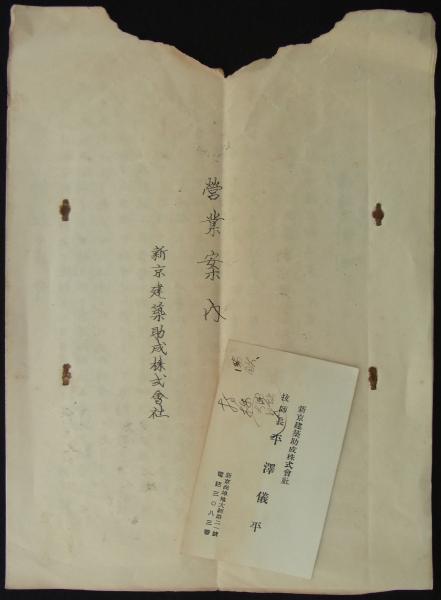 營業案內
新京建築助成株式會社
新京建築助成株式會社
技師長 平澤儀平
電話三〇八三番